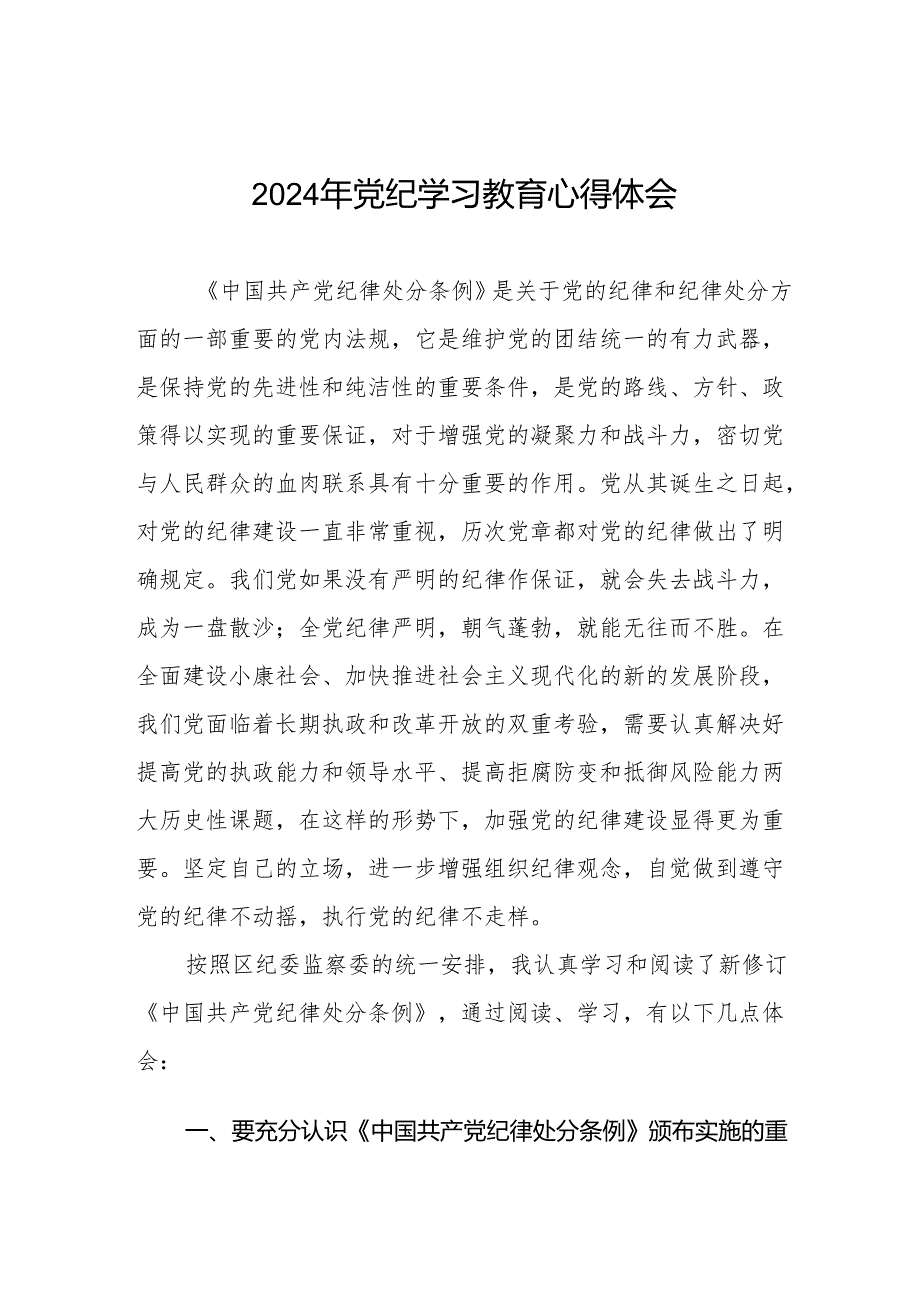 2024年党纪学习教育心得体会
《中国共产党纪律处分条例》是关于党的纪律和纪律处分方
面的一部重要的党内法规，它是维护党的团结统一的有力武器，
是保持党的先进性和纯洁性的重要条件，是党的路线、方针、政
策得以实现的重要保证，对于增强党的凝聚力和战斗力，密切党
与人民群众的血肉联系具有十分重要的作用。党从其诞生之日起，
对党的纪律建设一直非常重视，历次党章都对党的纪律做出了明
确规定。我们党如果没有严明的纪律作保证，就会失去战斗力，
成为一盘散沙；全党纪律严明，朝气蓬勃，就能无往而不胜。在
全面建设小康社会、加快推进社会主义现代化的新的发展阶段，
我们党面临着长期执政和改革开放的双重考验，需要认真解决好
提高党的执政能力和领导水平、提高拒腐防变和抵御风险能力两
大历史性课题，在这样的形势下，加强党的纪律建设显得更为重
要。坚定自己的立场，进一步增强组织纪律观念，自觉做到遵守
党的纪律不动摇，执行党的纪律不走样。
按照区纪委监察委的统一安排，我认真学习和阅读了新修订
《中国共产党纪律处分条例》，通过阅读、学习，有以下几点体
会：
一、要充分认识《中国共产党纪律处分条例》颁布实施的重